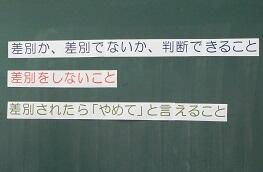 差別か、差別でないか、判断できること
差別をしないこと
差別されたら「やめて」と言えること